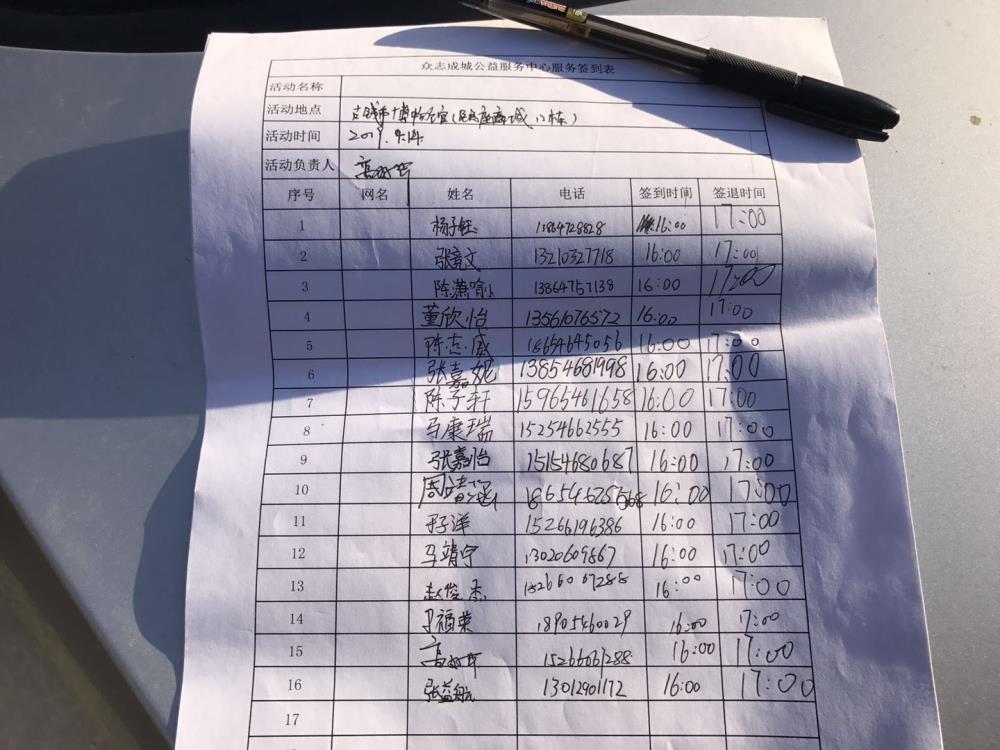 众志成城公益服务中心服务签到表
活动名称
活动地点 古钱币博物馆
活动时间 2019.9.14.
活动负责人 高
序号 网名 姓名 电话 签到时间 签退时间
1 杨子钰 13864728828 16:00 17:00
2 张彦文 13210327718 16:00 17:00
3 陈潇喻 13864757138 16:00 17:00
4 董欣怡 13561076572 16:00 17:00
5 陈志威 18654645056 16:00 17:00
6 张嘉妮 13854681998 16:00 17:00
7 陈子轩 15965461658 16:00 17:00
8 马康瑞 15254662555 16:00 17:00
9 张嘉怡 15154680687 16:00 17:00
10 周 16:00 17:00
11 洋 15266196386 16:00 17:00
12 马靖宇 13020609867 16:00 17:00
13 赵俊杰 16:00 17:00
14 福荣 18905460029 16:00 17:00
15 高 15266061288 16:00 17:00
16 张益航 13012901172 16:00 17:00
17